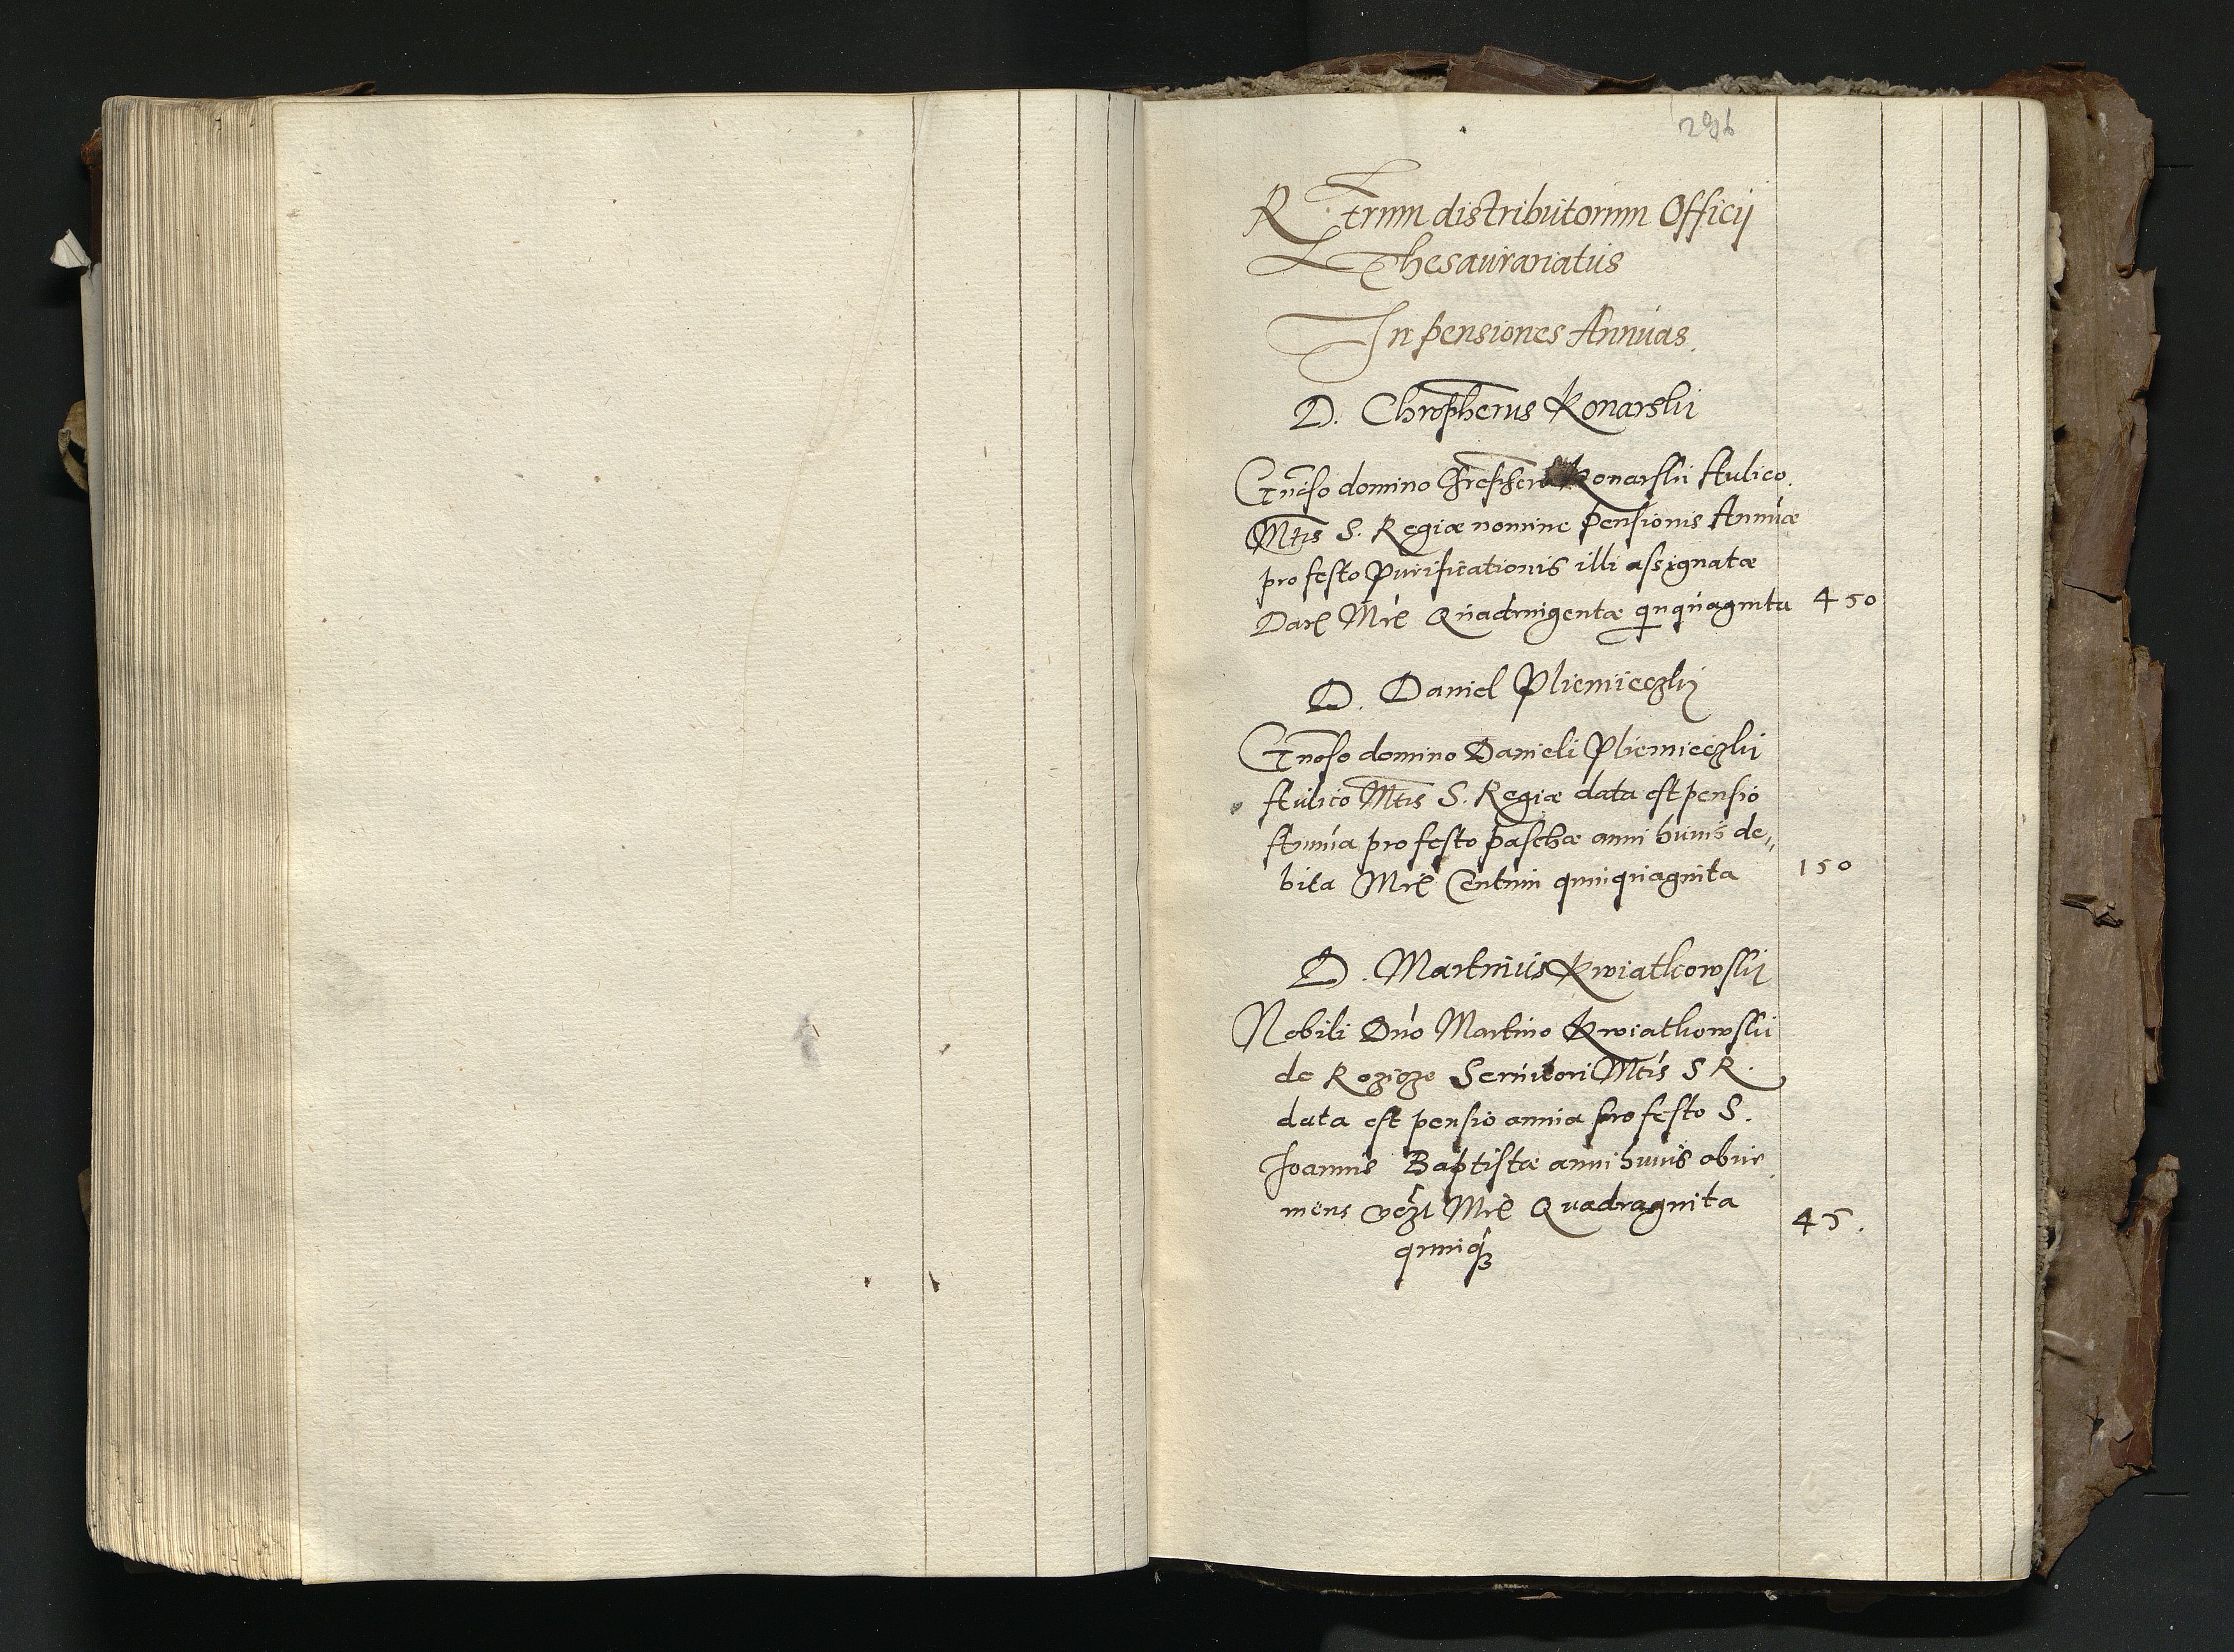 296
Rtrum distributorum Officij
Thesaurariatus
In pensiones Annuas.
D. Chropherus Konarskii
Gnoso domino Chrophero Konarskii Aulico
Mtis S. Regiæ nomine pensionis Annuæ
pro festo Purificationis illi assignatæ
Dare Mrc Quadringentæ qnquaginta 450
D. Daniel Pliemieczkij
Gnoso domino Danieli Pliemieczkii
Aulico Mtis S. Regiæ data est pensio
Annua pro festo paschæ anni huius de„
bita Mrc Centum quinquaginta 150
D. Martinus Kwiatkowskij
Nobili Dno Martino Kwiatkowskii
de Rozicze Seruitori Mtis S R.
data est pensio annua pro festo S.
Joannis Baptistæ anni huius obue
niens Mrc Quadraginta 45.
quinq3